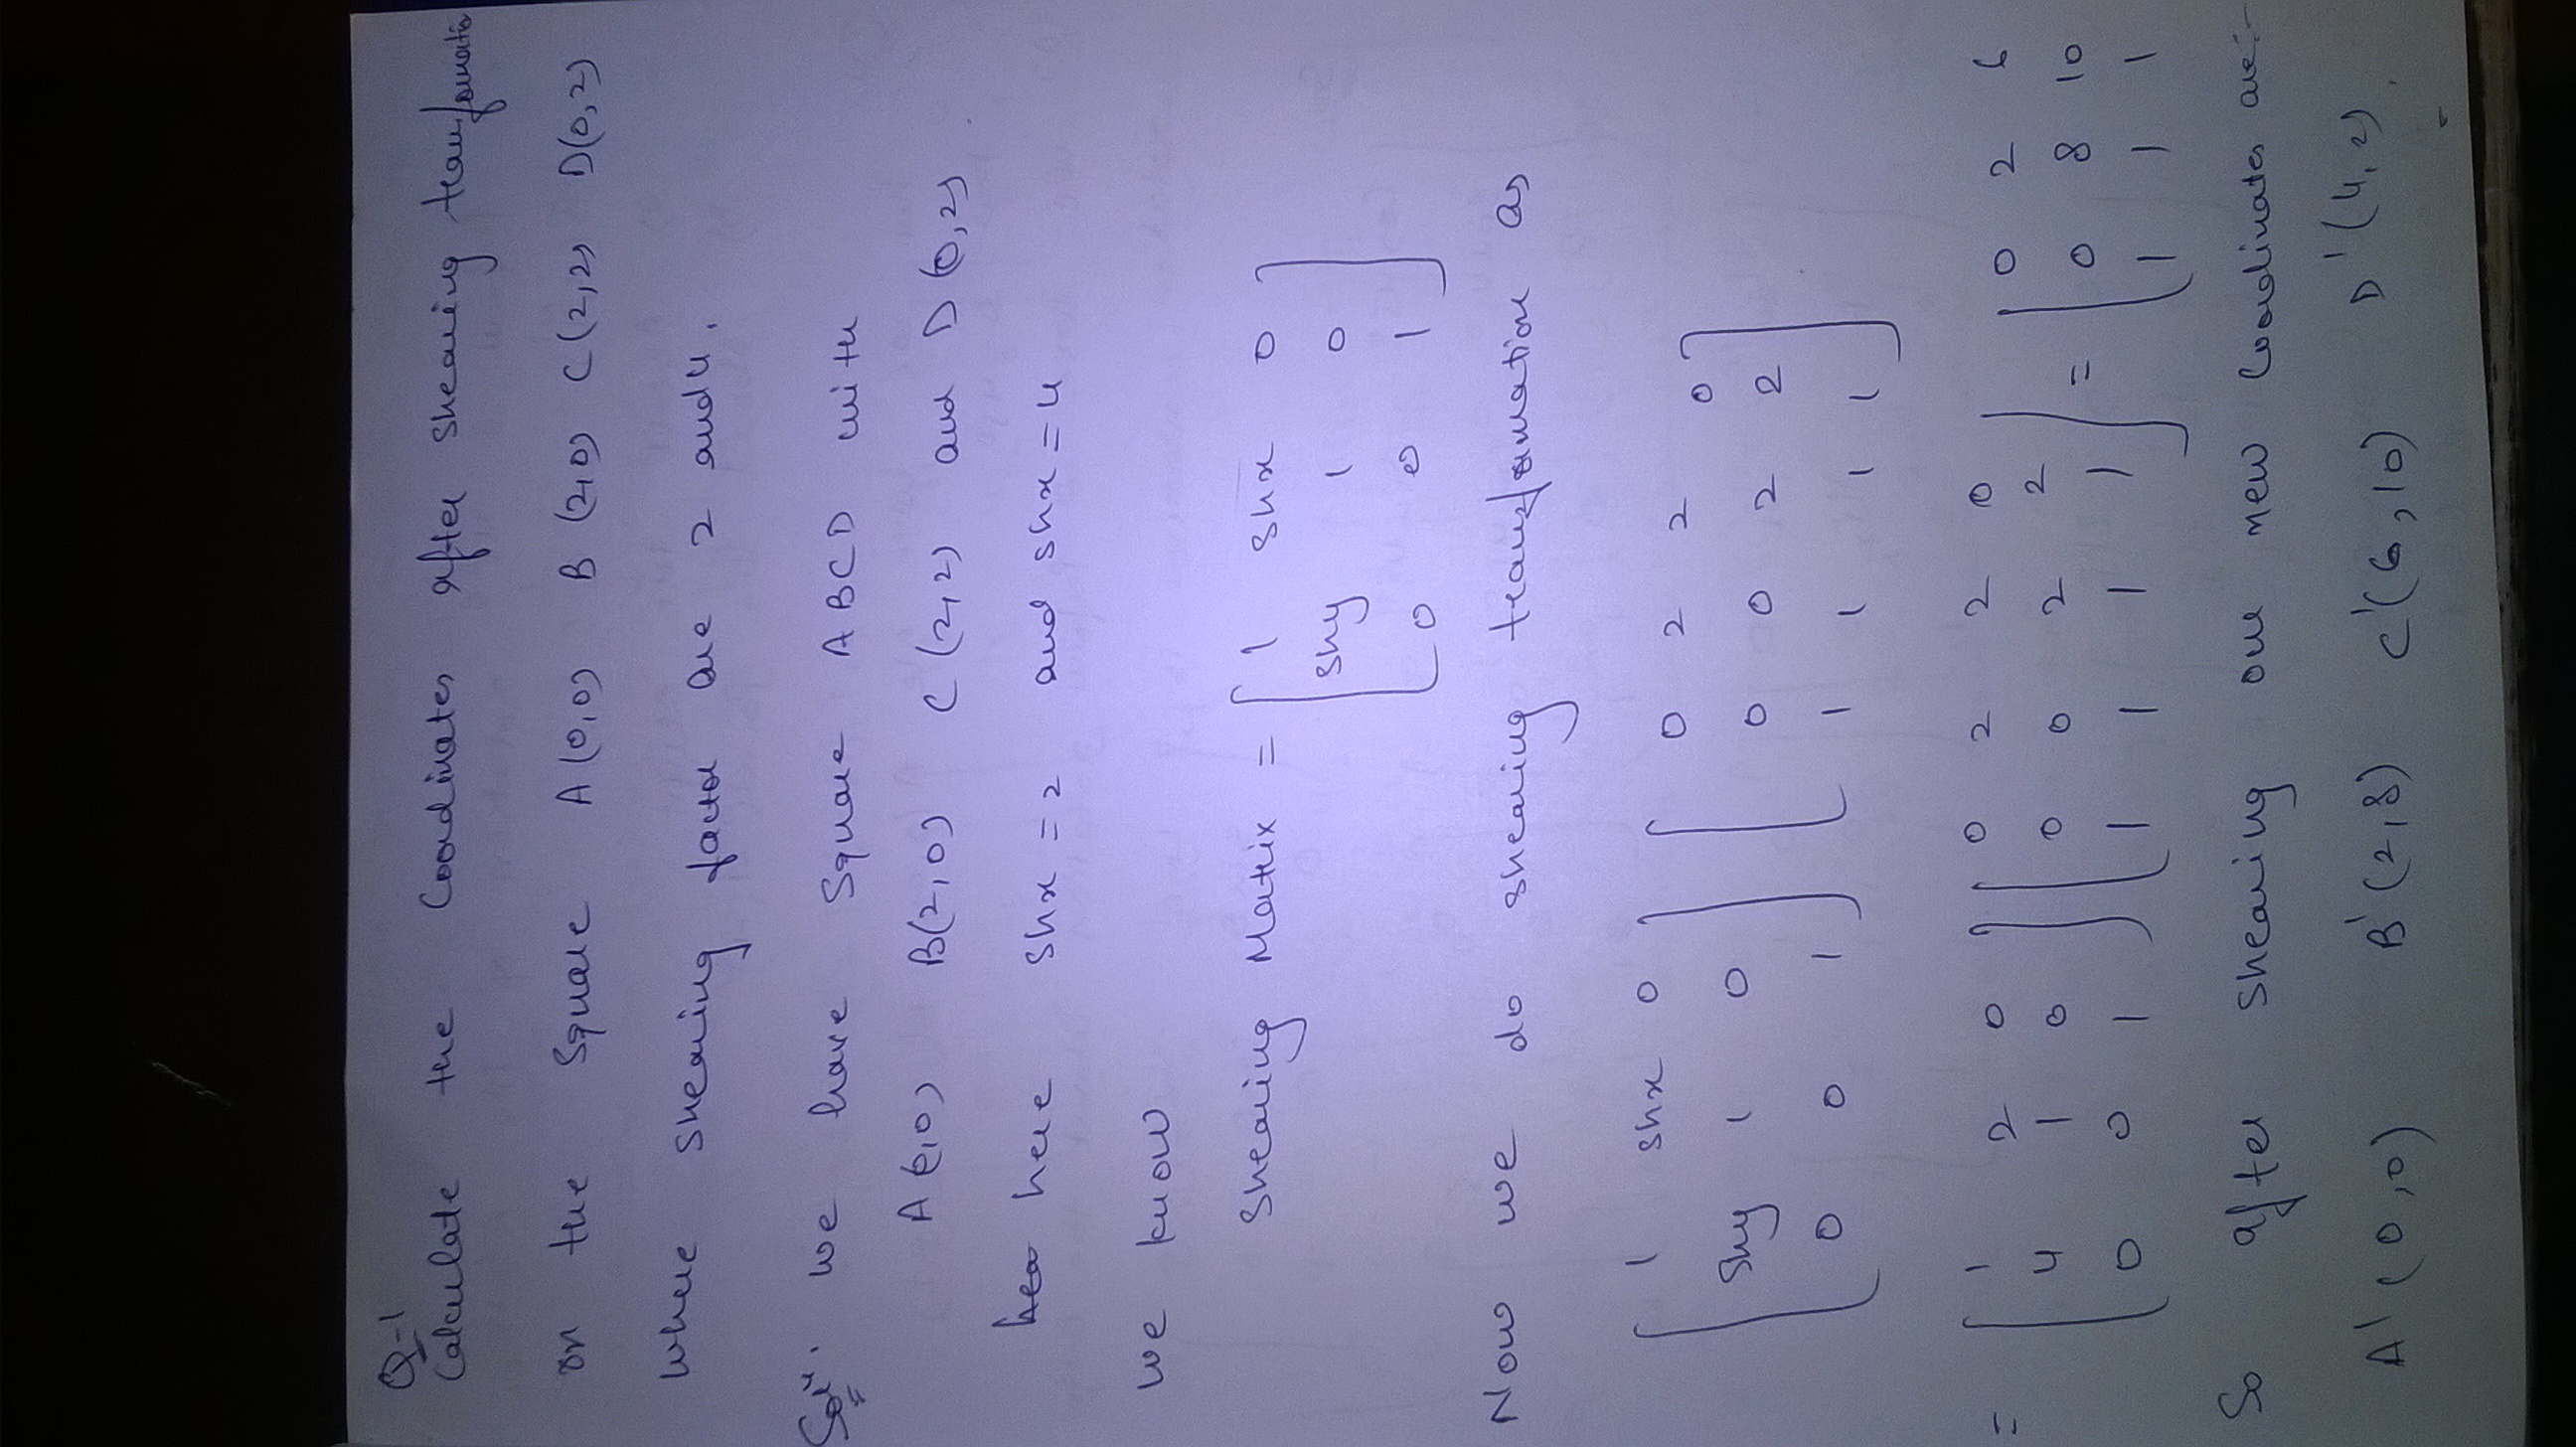 Q-1
Calculate the Coordinates after shearing transformatio
on the Square A(0,0) B(2,0) C(2,2) D(0,2)
where shearing factor are 2 and 4.
Solⁿ. we have Square ABCD with
A(0,0) B(2,0) C(2,2) and D(0,2)
here shx = 2 and shx = 4
we know
Shearing Matrix = [ 1 shx 0
shy 1 0
0 0 1 ]
Now we do shearing transformation as
[ 1 shx 0 ] [ 0 2 2 0 ]
shy 1 0 0 0 2 2
0 0 1 1 1 1 1
= [ 1 2 0 ] [ 0 2 2 0 ] = [ 0 2 6
4 1 0 0 0 2 2 0 8 10
0 0 1 1 1 1 1 1 1 1
So after shearing our new Coordinates are:-
A'(0,0) B'(2,8) C'(6,10) D'(4,2).